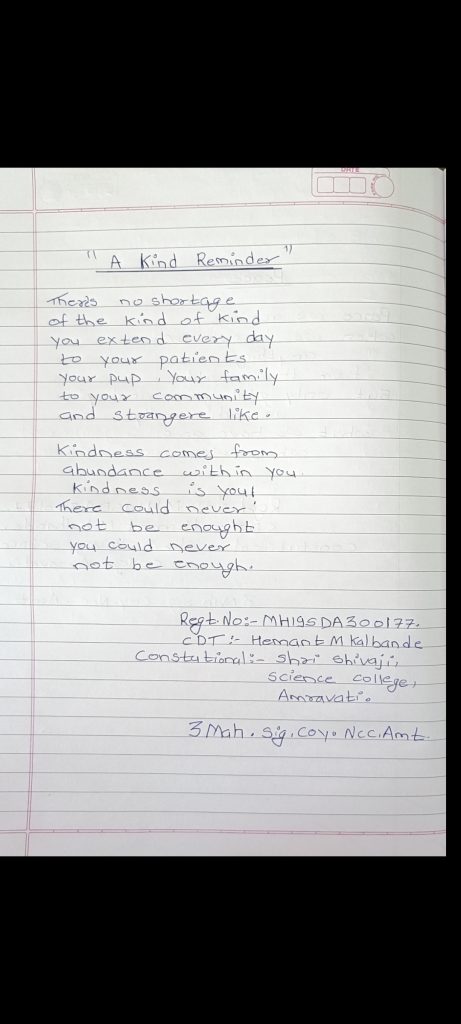 DATE
" A Kind Reminder "
There's no shortage
of the kind of kind
you extend every day
to your patients
your pup, Your family
to your community
and strangere like.
Kindness comes from
abundance within you.
Kindness is you!
There could never
not be enought
you could never
not be enough.
Regt.No:- MH19SDA300177.
CDT :- Hemant M Kalbande
Constutional:- Shri Shivaji,
science college,
Amravati.
3 Mah. Sig. Coy. Ncc. Amt.